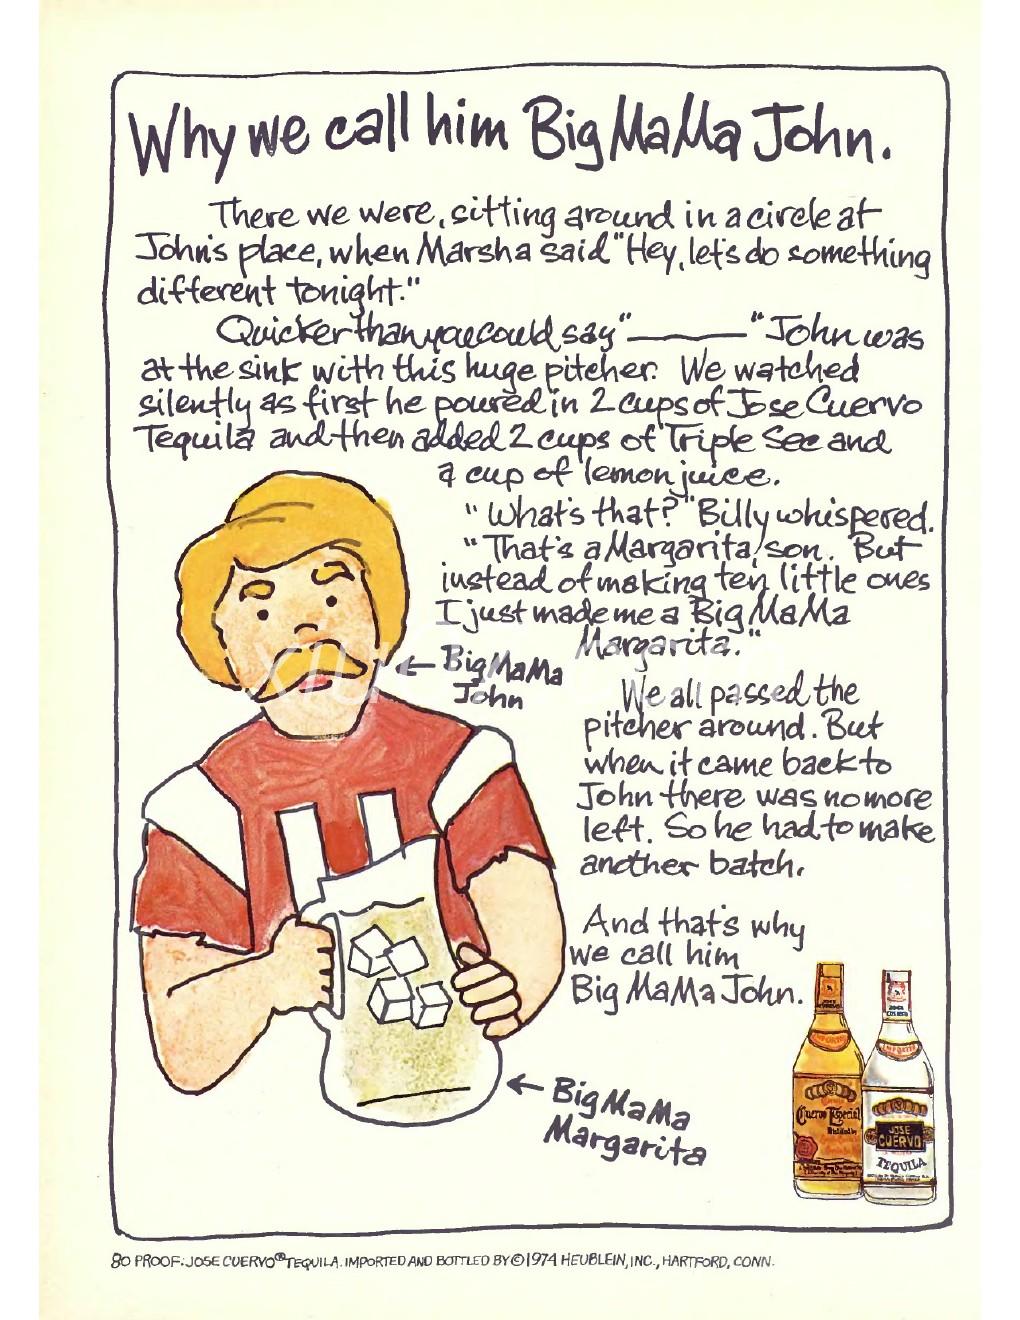 Why we call him Big MaMa John.
There we were, sitting around in a circle at
John's place, when Marsha said "Hey, let's do something
different tonight."
Quicker than you could say "———" John was
at the sink with this huge pitcher. We watched
silently as first he poured in 2 cups of Jose Cuervo
Tequila and then added 2 cups of Triple Sec and
a cup of lemon juice.
"What's that?" Billy whispered.
"That's a Margarita, son. But
instead of making ten little ones
I just made me a Big MaMa
Margarita."
← Big MaMa
John
We all passed the
pitcher around. But
when it came back to
John there was no more
left. So he had to make
another batch.
And that's why
we call him
Big MaMa John.
← Big MaMa
Margarita
Cuervo Especial
JOSE
CUERVO
TEQUILA
80 PROOF. JOSE CUERVO® TEQUILA. IMPORTED AND BOTTLED BY © 1974 HEUBLEIN, INC., HARTFORD, CONN.